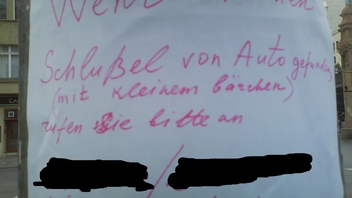 Schlußel von Auto gefunden
(mit kleinem bärchen)
rufen Sie bitte an